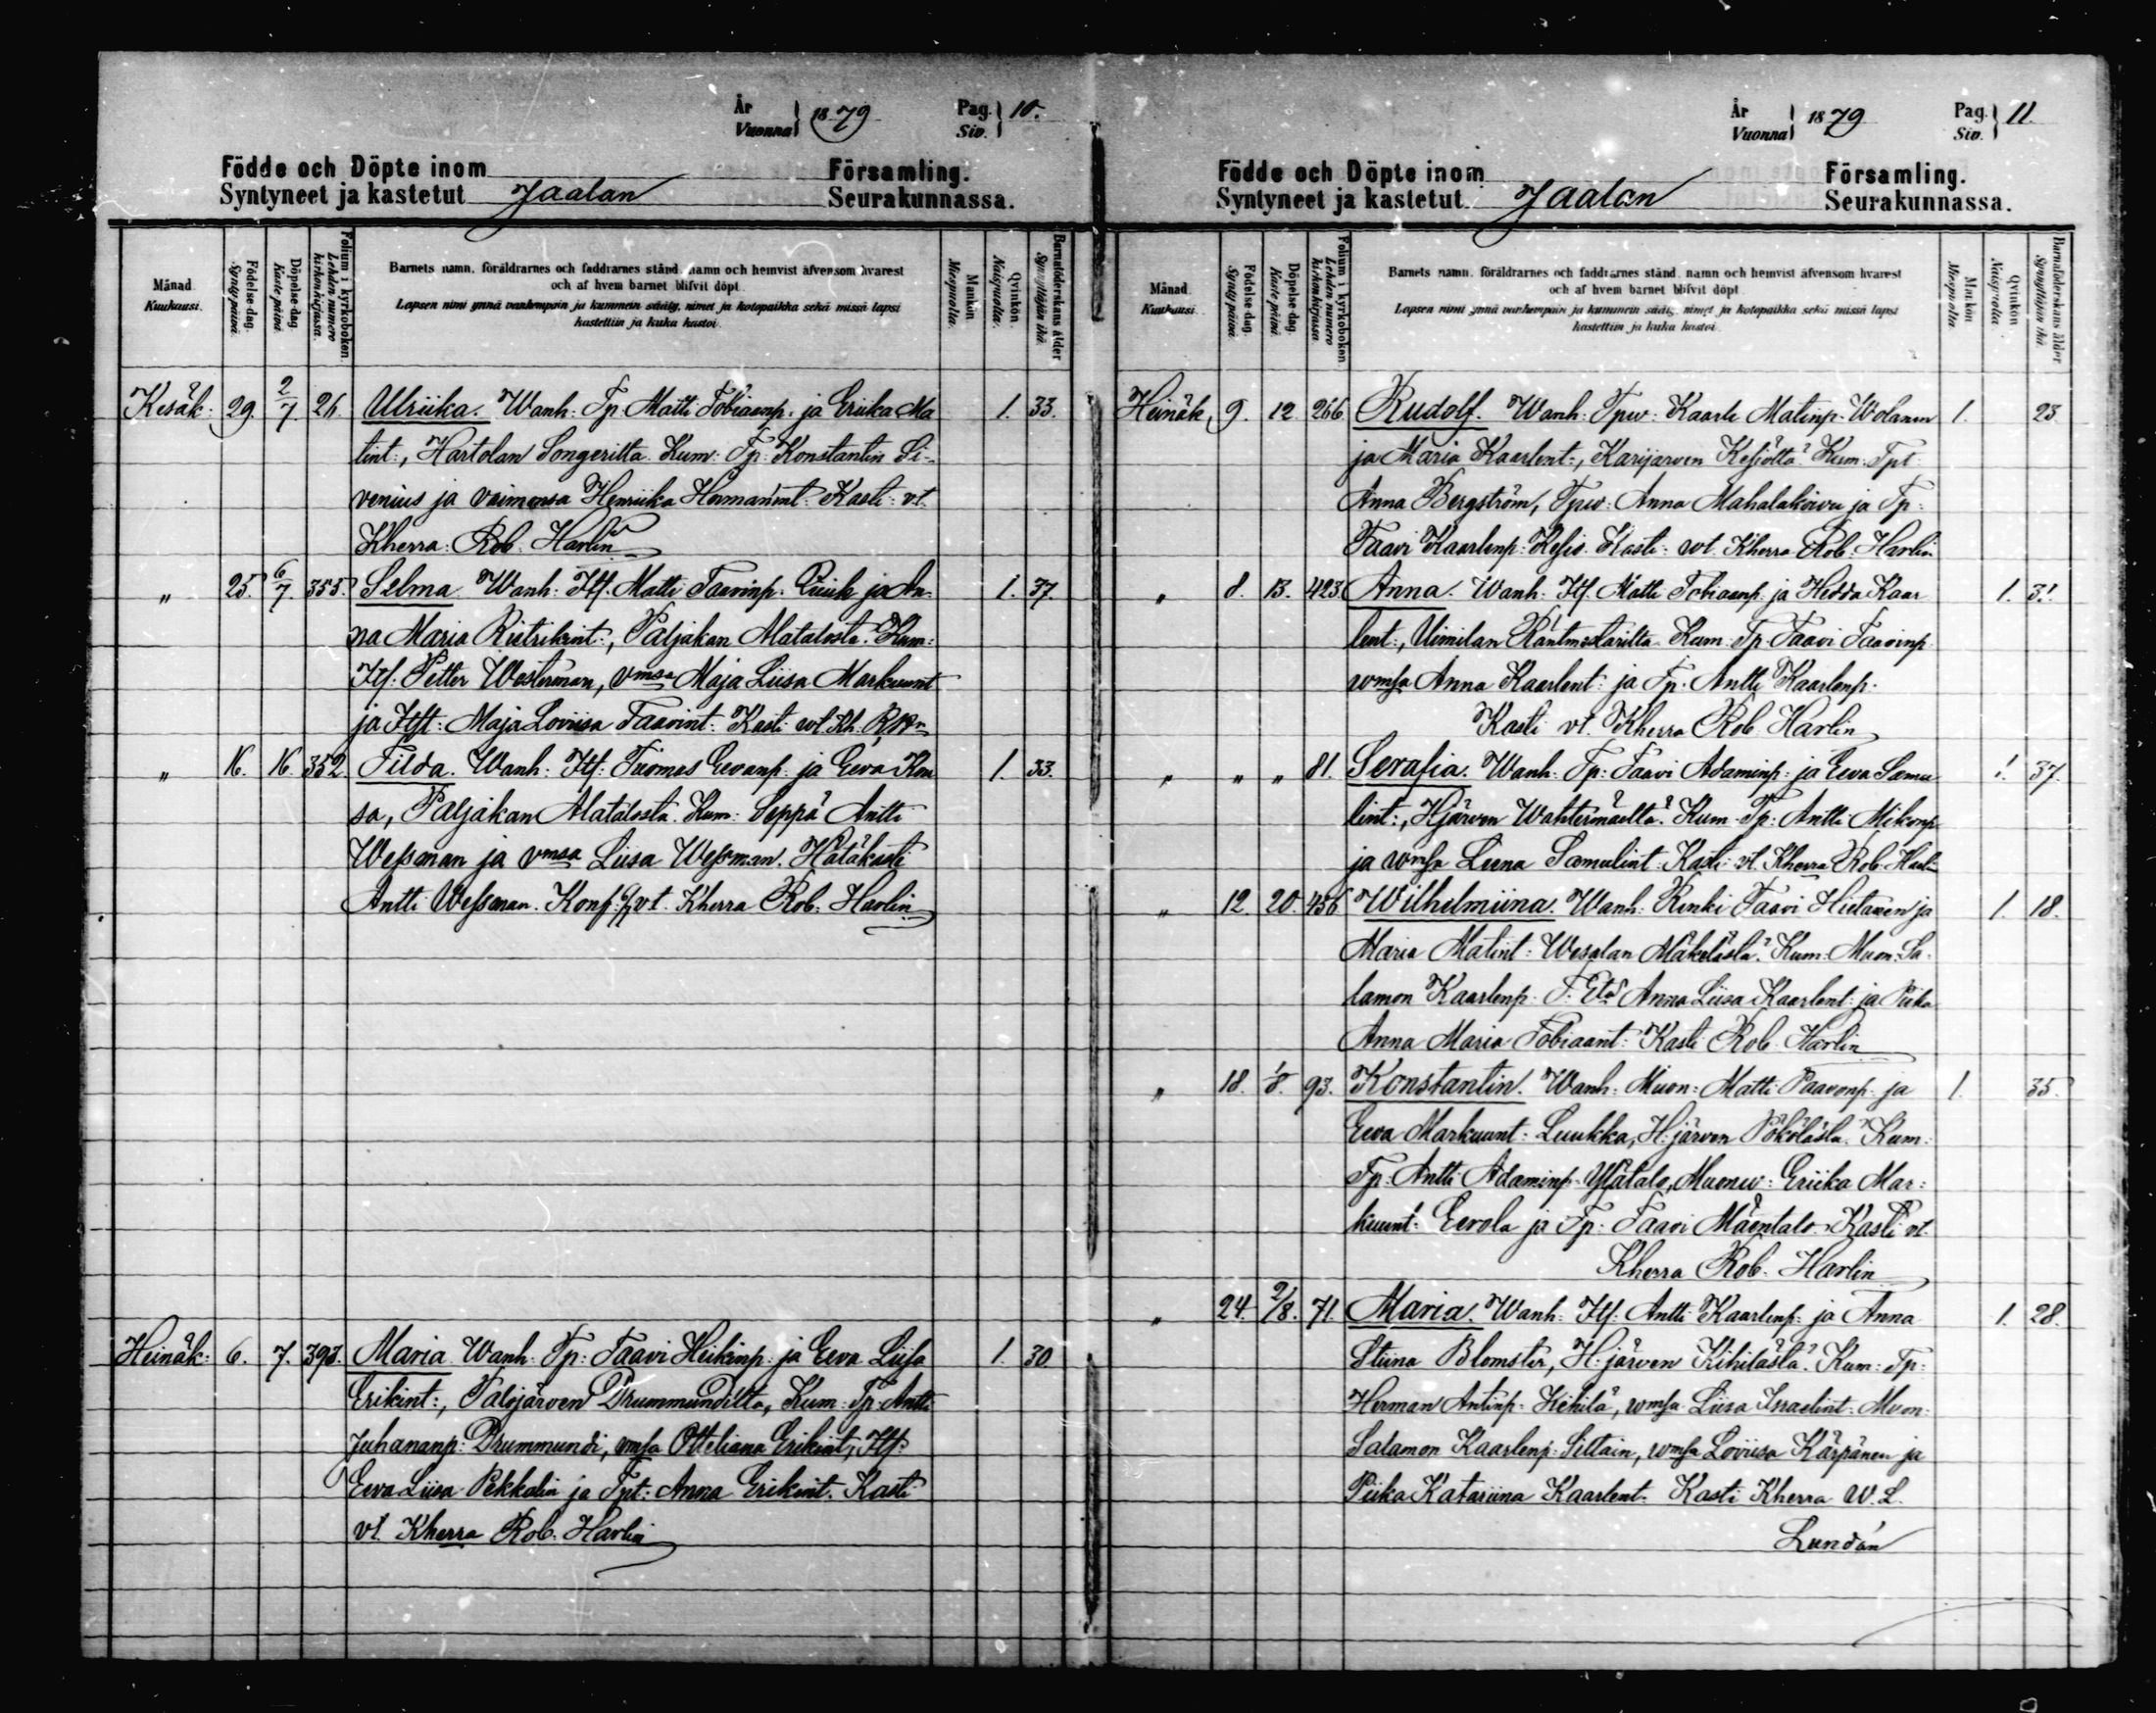 År Vuonna } 1879 Pag. Siv. } 10.
Födde och Döpte inom Församling.
Syntyneet ja kastetut Jaalan Seurakunnassa.
Månad Kuukausi.
Födelse-dag. Syntypäivä.
Döpelse-dag. Kastepäivä.
Folium i kyrkoboken. Lehden numero kirkonkirjassa.
Barnets namn, föräldrarnes och faddrarnes stånd, namn och hemvist äfvensom hvarest
och af hvem barnet blifvit döpt.
Lapsen nimi ynnä vanhempain ja kummein sääty, nimet ja kotopaikka sekä missä lapsi
kastettiin ja kuka kastoi.
Mankön Miespuolta.
Qvinkön. Naispuolta.
Barnaföderskans ålder Synnyttäjän ikä.
Kesäk: 29. 2/7 26. Ulriika. Wanh: Tp. Matti Tobiaanp. ja Eriika Ma 1. 33.
tint:, Hartolan Songerilta. Kum: Tp: Konstantin Si-
venius ja vaimonsa Henriika Hermannint: Kasti: vt.
Kherra: Rob. Harlin
" 25. 6/7. 355. Selma. Wanh: Itf. Matti Taavinp. ja An- 1. 37.
na Maria, Paljakan Alatalosta. Kum:
Itf. Petter Westerman, vmsa Maja Liisa Markuunt
ja Itft: Maja Loviisa Taavint: Kasti vt. Kh.
" 16. 16. 352 Tilda. Wanh: Itf: Tuomas Eevanp. ja Eeva Kon 1. 33.
sa, Paljakan Alatalosta. Kum: Seppä Antti
Wessman ja vmsa Liisa Wessman. Hätäkasti
Antti Wessman. Konf. vt. Kherra Rob. Harlin
Heinäk: 6. 7. 393. Maria. Wanh: Tp: Taavi Heikinp. ja Eeva Liisa 1. 30
Erikint:, Palojärven Drummundilta, Kum: Tp. Antti
Juhananp: Drummundi, vmsa Otteliana Erikint, Itf:
Eeva Liisa Pekkalin ja Tpt: Anna Erikint. Kasti
vt. Kherra Rob. Harlin
År Vuonna } 1879 Pag. Siv. } 11.
Födde och Döpte inom Församling.
Syntyneet ja kastetut Jaalan Seurakunnassa.
Månad Kuukausi.
Födelse-dag. Syntypäivä.
Döpelse-dag. Kastepäivä.
Folium i kyrkoboken. Lehden numero kirkonkirjassa.
Barnets namn, föräldrarnes och faddrarnes stånd, namn och hemvist äfvensom hvarest
och af hvem barnet blifvit döpt.
Lapsen nimi ynnä vanhempain ja kummein sääty, nimet ja kotopaikka sekä missä lapsi
kastettiin ja kuka kastoi.
Mankön Miespuolta
Qvinkön Naispuolta
Barnaföderskans ålder Synnyttäjän ikä.
Heinäk 9. 12 266 Rudolf. Wanh: Tpw: Kaarle Matinp. Wolanen 1. 23
ja Maria Kaarlent:, Karijärven Kesiöltä. Kum: Tpt
Anna Bergström, Tpw: Anna Mahalakoivu ja Tp:
Taavi Kaarlenp: Kesiö. Kasti: vt. Kherra Rob. Harlin
" 8. 13. 423. Anna. Wanh: Itf. Matti Tobiaanp. ja Hedda Kaar 1. 31
lent:, Uimilan Räntmestarilta. Kum: Tp. Taavi Taavinp.
wmsa Anna Kaarlent: ja Tp. Antti Kaarlenp.
Kasti vt. Kherra Rob. Harlin
" " " 81. Serafia. Wanh: Tp: Taavi Adaminp: ja Eeva Samu 1. 37.
lint:, Hjärven Wahtermäeltä. Kum. Tp: Antti Mikonp.
ja wmsa Leena Samulint: Kasti: vt. Kherra Rob. Harlin
" 12. 20. 456. Wilhelmiina. Wanh: Renki Taavi Hietanen ja 1. 18.
Maria Matint: Wesalan Mäkelästä. Kum: Muon: Sa-
lamon Kaarlenp. Anna Liisa Kaarlent: ja Piika
Anna Maria Tobiaant: Kasti Rob. Harlin
" 18. 1/8. 93. Konstantin. Wanh: Muon: Matti Paavonp. ja 1. 35.
Eeva Markuunt: Luukka, H:järven Pökölästä. Kum:
Tp: Antti Adaminp. Ylätalo, Muonw: Eriika Mar-
kuunt: Eerola ja Tp: Taavi Mäentalo. Kasti vt.
Kherra Rob. Harlin
" 24. 2/8. 71. Maria. Wanh: Itf: Antti Kaarlenp: ja Anna 1. 28.
Stiina Blomster, H:järven Kihilästä. Kum: Tp:
Herman Antinp. Kihilä, wmsa Liisa Israelint. Muon:
Salamon Kaarlenp: Siltain, wmsa Loviisa Kärpänen ja
Piika Katariina Kaarlent. Kasti Kherra W. L.
Lundán